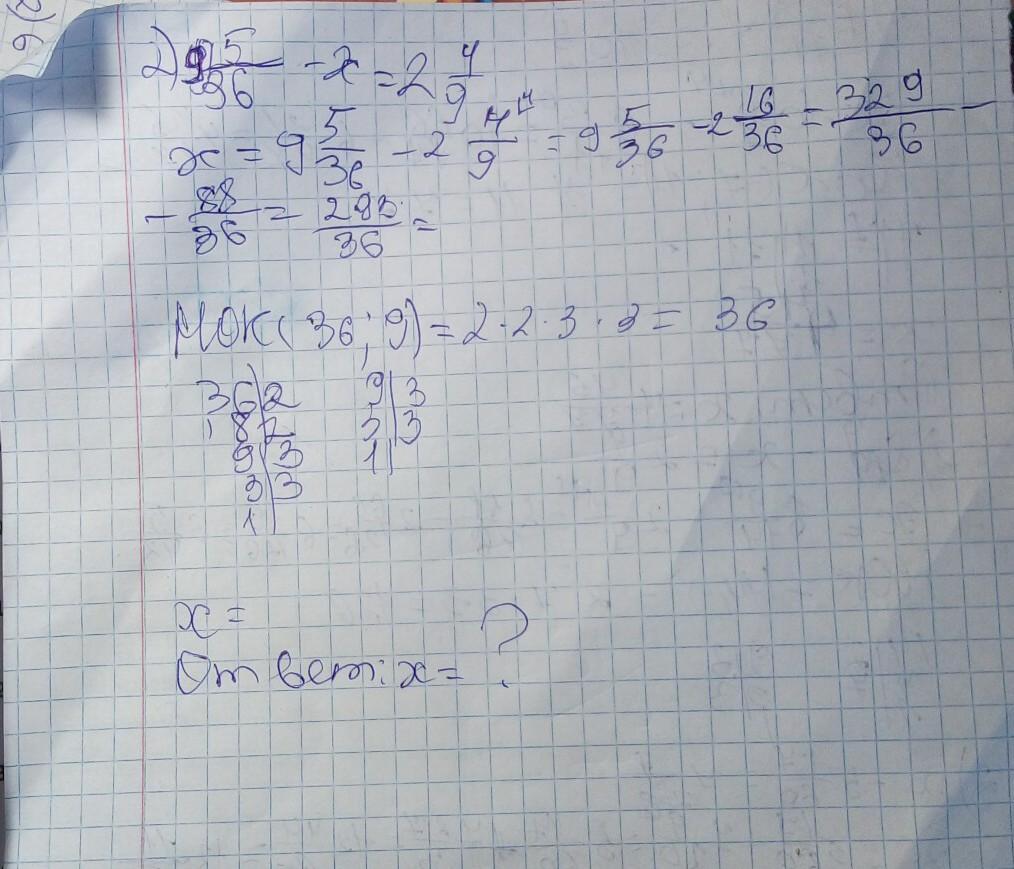 2) 9 5/36 - x = 2 4/9
x = 9 5/36 - 2 4/9 ⁴ = 9 5/36 - 2 16/36 = 329/36 -
- 88/36 = 293/36 =
НОК( 36; 9) = 2·2·3·3 = 36
36|2 9|3
18|2 3|3
9|3 1|
3|3
1|
x =
Ответ: x = ?